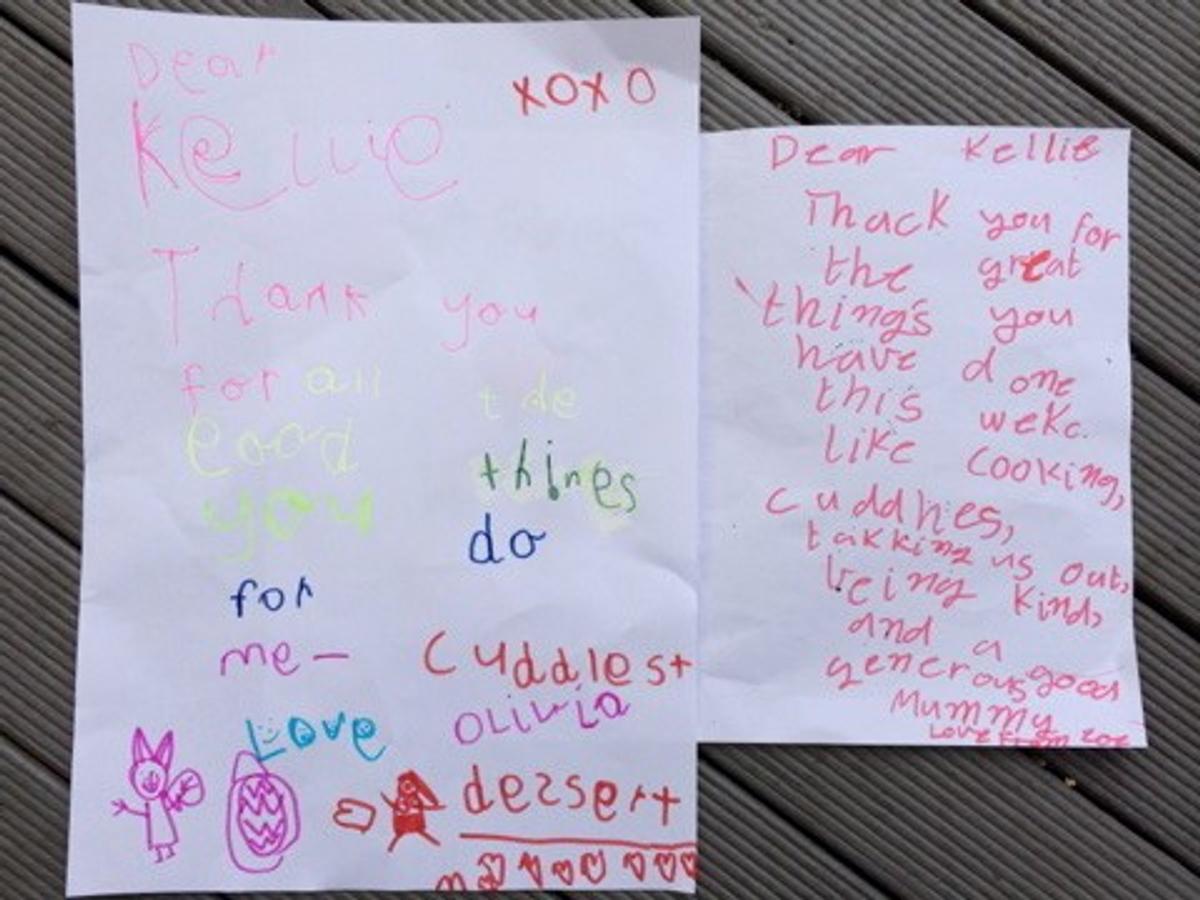 Dear
Kellie
XOXO
Thank you
for all tde
Good things
you do
for
me - Cuddles +
Love Olivia
dezsert
Dear Kellie
Thack you for
the great
things you
have done
this weke.
like cooking,
cuddles,
takking us out,
being kind,
and a
generous good
Mummy
Love From Zoe